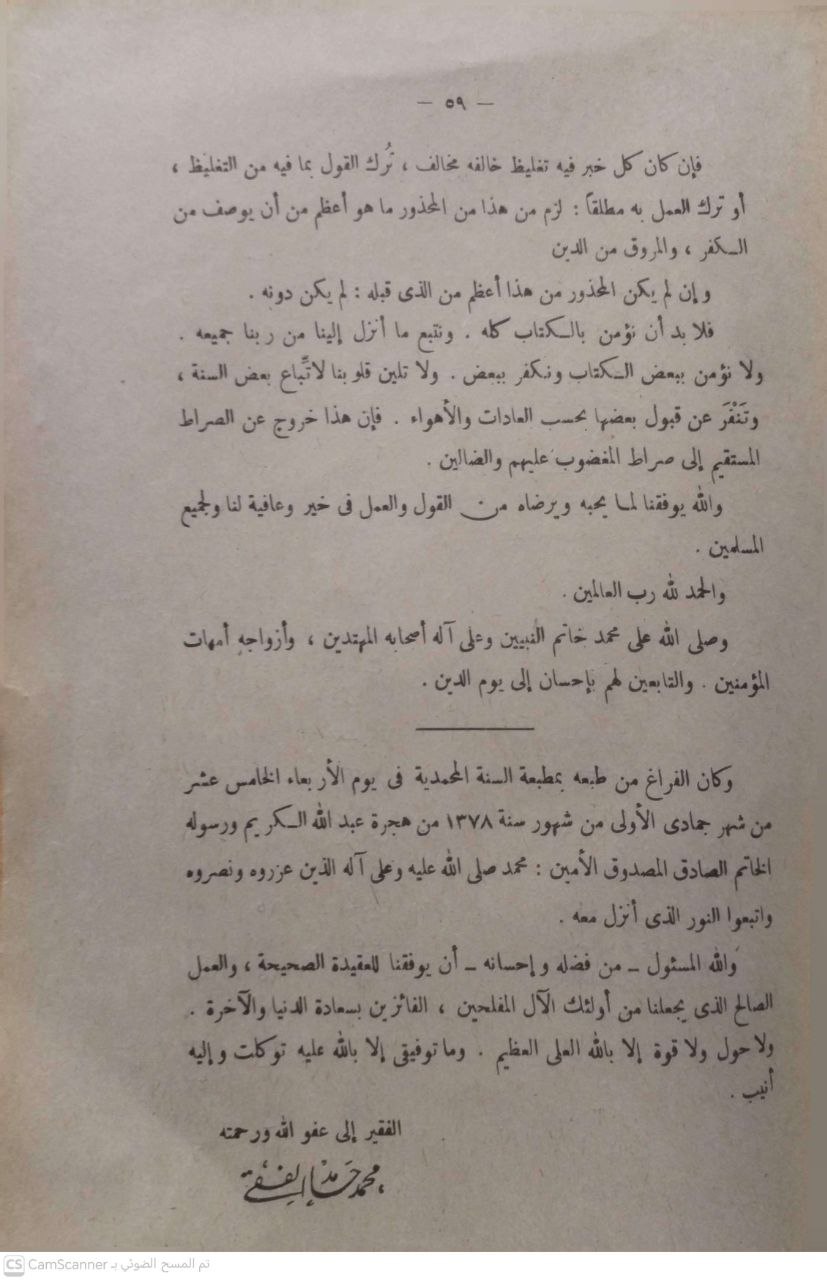 — ٥٩ —
فإن كان كل خبر فيه تغليظ خالفه مخالف ، تُرك القول بما فيه من التغليظ ،
أو ترك العمل به مطلقاً : لزم من هذا من المحذور ما هو أعظم من أن يوصف من
الكفر ، والمروق من الدين
وإن لم يكن المحذور من هذا أعظم من الذى قبله : لم يكن دونه .
فلا بد أن نؤمن بالكتاب كله . ونتبع ما أنزل إلينا من ربنا جميعه .
ولا نؤمن ببعض الكتاب ونكفر ببعض . ولا تلين قلوبنا لاتِّباع بعض السنة ،
وتَنْفَرَ عن قبول بعضها بحسب العادات والأهواء . فإن هذا خروج عن الصراط
المستقيم إلى صراط المغضوب عليهم والضالين .
والله يوفقنا لما يحبه ويرضاه من القول والعمل فى خير وعافية لنا ولجميع
المسلمين .
والحمد لله رب العالمين .
وصلى الله على محمد خاتم النبيين وعلى آله أصحابه المهتدين ، وأزواجه أمهات
المؤمنين . والتابعين لهم بإحسان إلى يوم الدين .
وكان الفراغ من طبعه بمطبعة السنة المحمدية فى يوم الأربعاء الخامس عشر
من شهر جمادى الأولى من شهور سنة ١٣٧٨ من هجرة عبد الله الكريم ورسوله
الخاتم الصادق المصدوق الأمين : محمد صلى الله عليه وعلى آله الذين عزروه ونصروه
واتبعوا النور الذى أنزل معه .
والله المسئول – من فضله وإحسانه – أن يوفقنا للعقيدة الصحيحة ، والعمل
الصالح الذى يجعلنا من أولئك الآل المفلحين ، الفائزين بسعادة الدنيا والآخرة .
ولا حول ولا قوة إلا بالله العلى العظيم . وما توفيقى إلا بالله عليه توكلت وإليه
أنيب .
الفقير إلى عفو الله ورحمته
محمد حامد الفقي
CS CamScanner تم المسح الضوئي بـ